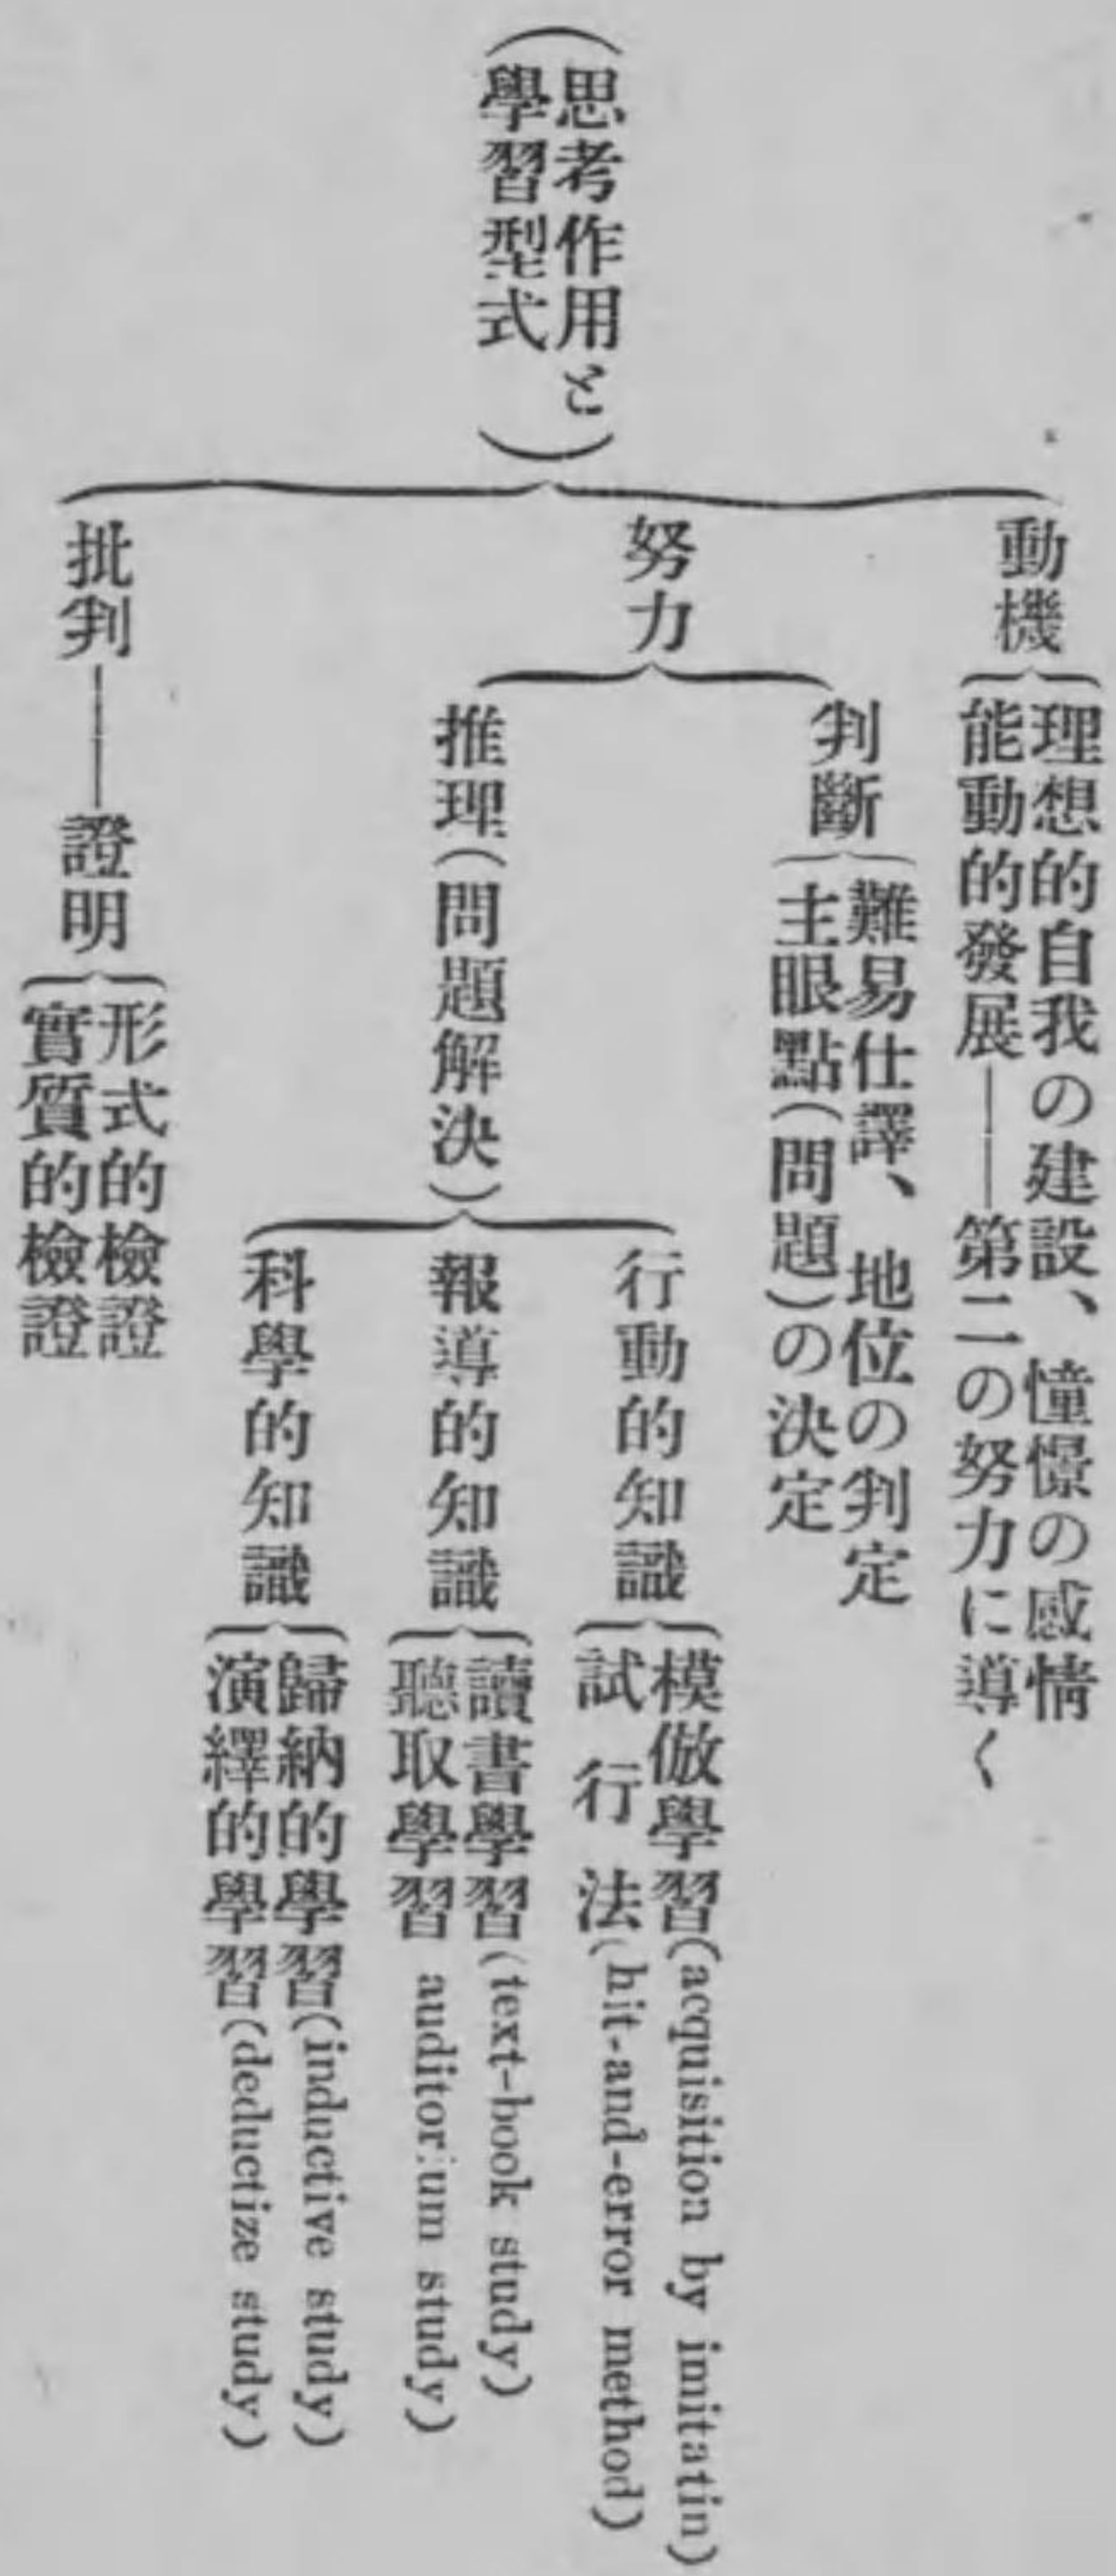 (思考作用と
學習型式)
動機
理想的自我の建設、憧憬の感情
能動的發展――第二の努力に導く
努力
判斷
難易仕譯、地位の判定
主眼點(問題)の決定
推理(問題解決)
行動的知識
模倣學習(acquisition by imitatin)
試行法(hit-and-error method)
報導的知識
讀書學習(text-book study)
聽取學習 auditorium study)
科學的知識
歸納的學習(inductive study)
演繹的學習(deductize study)
批判――證明
形式的檢證
實質的檢證